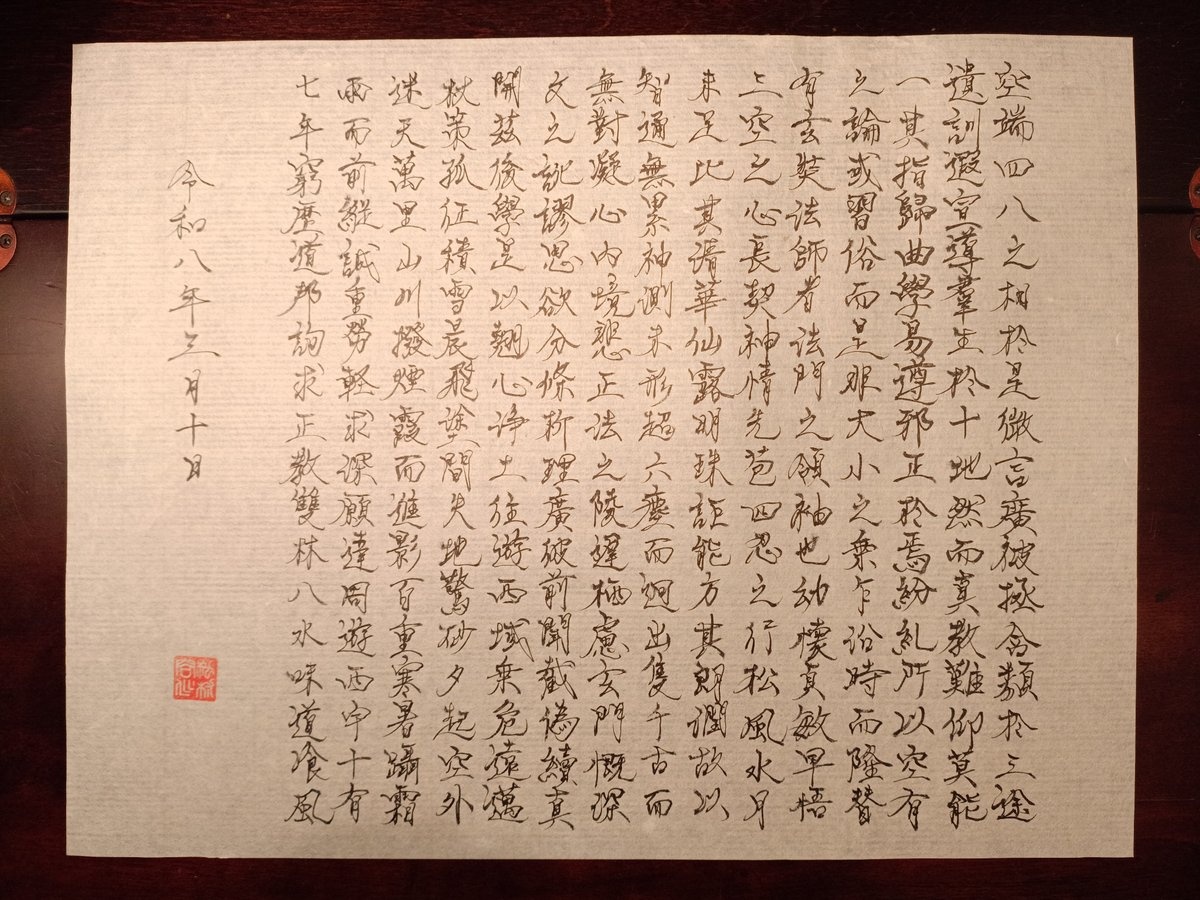 空端四八之相於是微言廣被拯含類於三途
遺訓遐宣導羣生於十地然而真教難仰莫能
一其指歸曲學易遵邪正於焉紛糺所以空有
之論或習俗而是非大小之乗乍沿時而隆替
有玄奘法師者法門之領袖也幼懷貞敏早悟
三空之心長契神情先苞四忍之行松風水月
未足比其清華仙露明珠詎能方其朗潤故以
智通無累神測未形超六塵而迥出隻千古而
無對凝心内境悲正法之陵遲栖慮玄門慨深
文之訛謬思欲分條析理廣彼前聞截偽續真
開茲後學是以翹心浄土往遊西域乗危遠邁
杖策孤征積雪晨飛途間失地驚砂夕起空外
迷天萬里山川撥煙霞而進影百重寒暑躡霜
雨而前蹤誠重勞軽求深願達周遊西宇十有
七年窮歴道邦詢求正教雙林八水味道飡風
令和八年三月十日